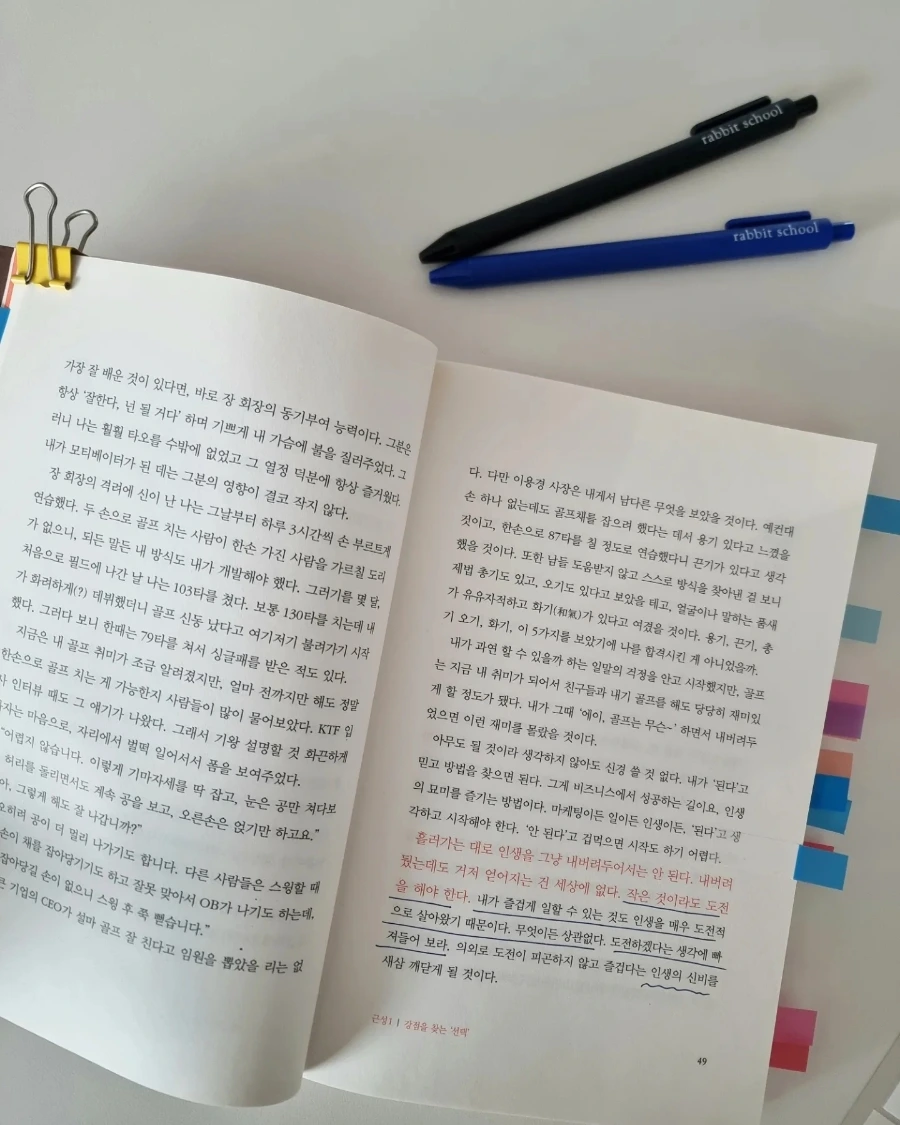 rabbit school
rabbit school
가장 잘 배운 것이 있다면, 바로 장 회장의 동기부여 능력이다. 그분은
항상 ‘잘한다, 넌 될 거다’ 하며 기쁘게 내 가슴에 불을 질러주었다. 그
러니 나는 훨훨 타오를 수밖에 없었고 그 열정 덕분에 항상 즐거웠다.
내가 모티베이터가 된 데는 그분의 영향이 결코 작지 않다.
장 회장의 격려에 신이 난 나는 그날부터 하루 3시간씩 손 부르트게
연습했다. 두 손으로 골프 치는 사람이 한손 가진 사람을 가르칠 도리
가 없으니, 되든 말든 내 방식도 내가 개발해야 했다. 그러기를 몇 달,
처음으로 필드에 나간 날 나는 103타를 쳤다. 보통 130타를 치는데 내
가 화려하게(?) 데뷔했더니 골프 신동 났다고 여기저기 불려가기 시작
했다. 그러다 보니 한때는 79타를 쳐서 싱글패를 받은 적도 있다.
지금은 내 골프 취미가 조금 알려졌지만, 얼마 전까지만 해도 정말
한손으로 골프 치는 게 가능한지 사람들이 많이 물어보았다. KTF 입
사 인터뷰 때도 그 얘기가 나왔다. 그래서 기왕 설명할 것 화끈하게
하자는 마음으로, 자리에서 벌떡 일어서서 폼을 보여주었다.
“어렵지 않습니다. 이렇게 기마자세를 딱 잡고, 눈은 공만 쳐다보
허리를 돌리면서도 계속 공을 보고, 오른손은 얹기만 하고요.”
아, 그렇게 해도 잘 나갑니까?”
오히려 공이 더 멀리 나가기도 합니다. 다른 사람들은 스윙할 때
손이 채를 잡아당기기도 하고 잘못 맞아서 OB가 나기도 하는데,
잡아당길 손이 없으니 스윙 후 쭉 뻗습니다.”
큰 기업의 CEO가 설마 골프 잘 친다고 임원을 뽑았을 리는 없
다. 다만 이용경 사장은 내게서 남다른 무엇을 보았을 것이다. 예컨대
손 하나 없는데도 골프채를 잡으려 했다는 데서 용기 있다고 느꼈을
것이고, 한손으로 87타를 칠 정도로 연습했다니 끈기가 있다고 생각
했을 것이다. 또한 남들 도움받지 않고 스스로 방식을 찾아낸 걸 보니
제법 총기도 있고, 오기도 있다고 보았을 테고, 얼굴이나 말하는 품새
가 유유자적하고 화기(和氣)가 있다고 여겼을 것이다. 용기, 끈기, 총
기 오기, 화기, 이 5가지를 보았기에 나를 합격시킨 게 아니었을까.
내가 과연 할 수 있을까 하는 일말의 걱정을 안고 시작했지만, 골프
는 지금 내 취미가 되어서 친구들과 내기 골프를 해도 당당히 재미있
게 할 정도가 됐다. 내가 그때 ‘에이, 골프는 무슨~’ 하면서 내버려두
었으면 이런 재미를 몰랐을 것이다.
아무도 될 것이라 생각하지 않아도 신경 쓸 것 없다. 내가 ‘된다’고
믿고 방법을 찾으면 된다. 그게 비즈니스에서 성공하는 길이요, 인생
의 묘미를 즐기는 방법이다. 마케팅이든 일이든 인생이든, ‘된다’고 생
각하고 시작해야 한다. ‘안 된다’고 겁먹으면 시작도 하기 어렵다.
흘러가는 대로 인생을 그냥 내버려두어서는 안 된다. 내버려
뒀는데도 거저 얻어지는 건 세상에 없다. 작은 것이라도 도전
을 해야 한다. 내가 즐겁게 일할 수 있는 것도 인생을 매우 도전적
으로 살아왔기 때문이다. 무엇이든 상관없다. 도전하겠다는 생각에 빠
져들어 보라. 의외로 도전이 피곤하지 않고 즐겁다는 인생의 신비를
새삼 깨닫게 될 것이다.
근성1 | 강점을 찾는 ‘선택’
49